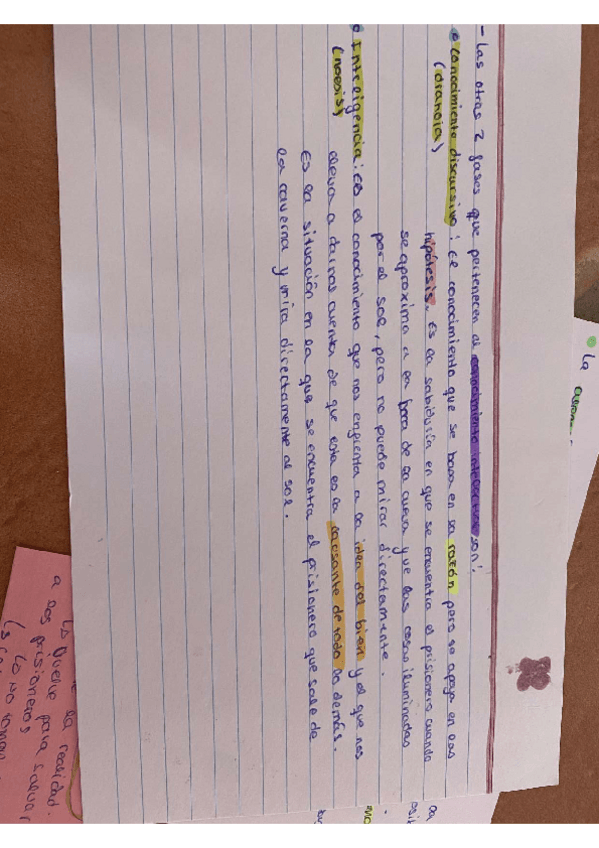 - Las otras 2 fases que pertenecen al conocimiento intelectual son:
• Conocimiento discursivo: El conocimiento que se basa en la razón pero se apoya en las
(dianoia)
hipótesis. Es la sabiduría en que se encuentra el prisionero cuando
se aproxima a la boca de la cueva y ve las cosas iluminadas
por el sol, pero no puede mirar directamente.
• Inteligencia: es el conocimiento que nos enfrenta a la idea del bien y el que nos
(noesis)
lleva a darnos cuenta de que esta es la causante de todo lo demás.
Es la situación en la que se encuentra el prisionero que sale de
la caverna y mira directamente al sol.
• La
la realidad.
↳ Vuelve para salvar
a los prisioneros
↳ Lo no